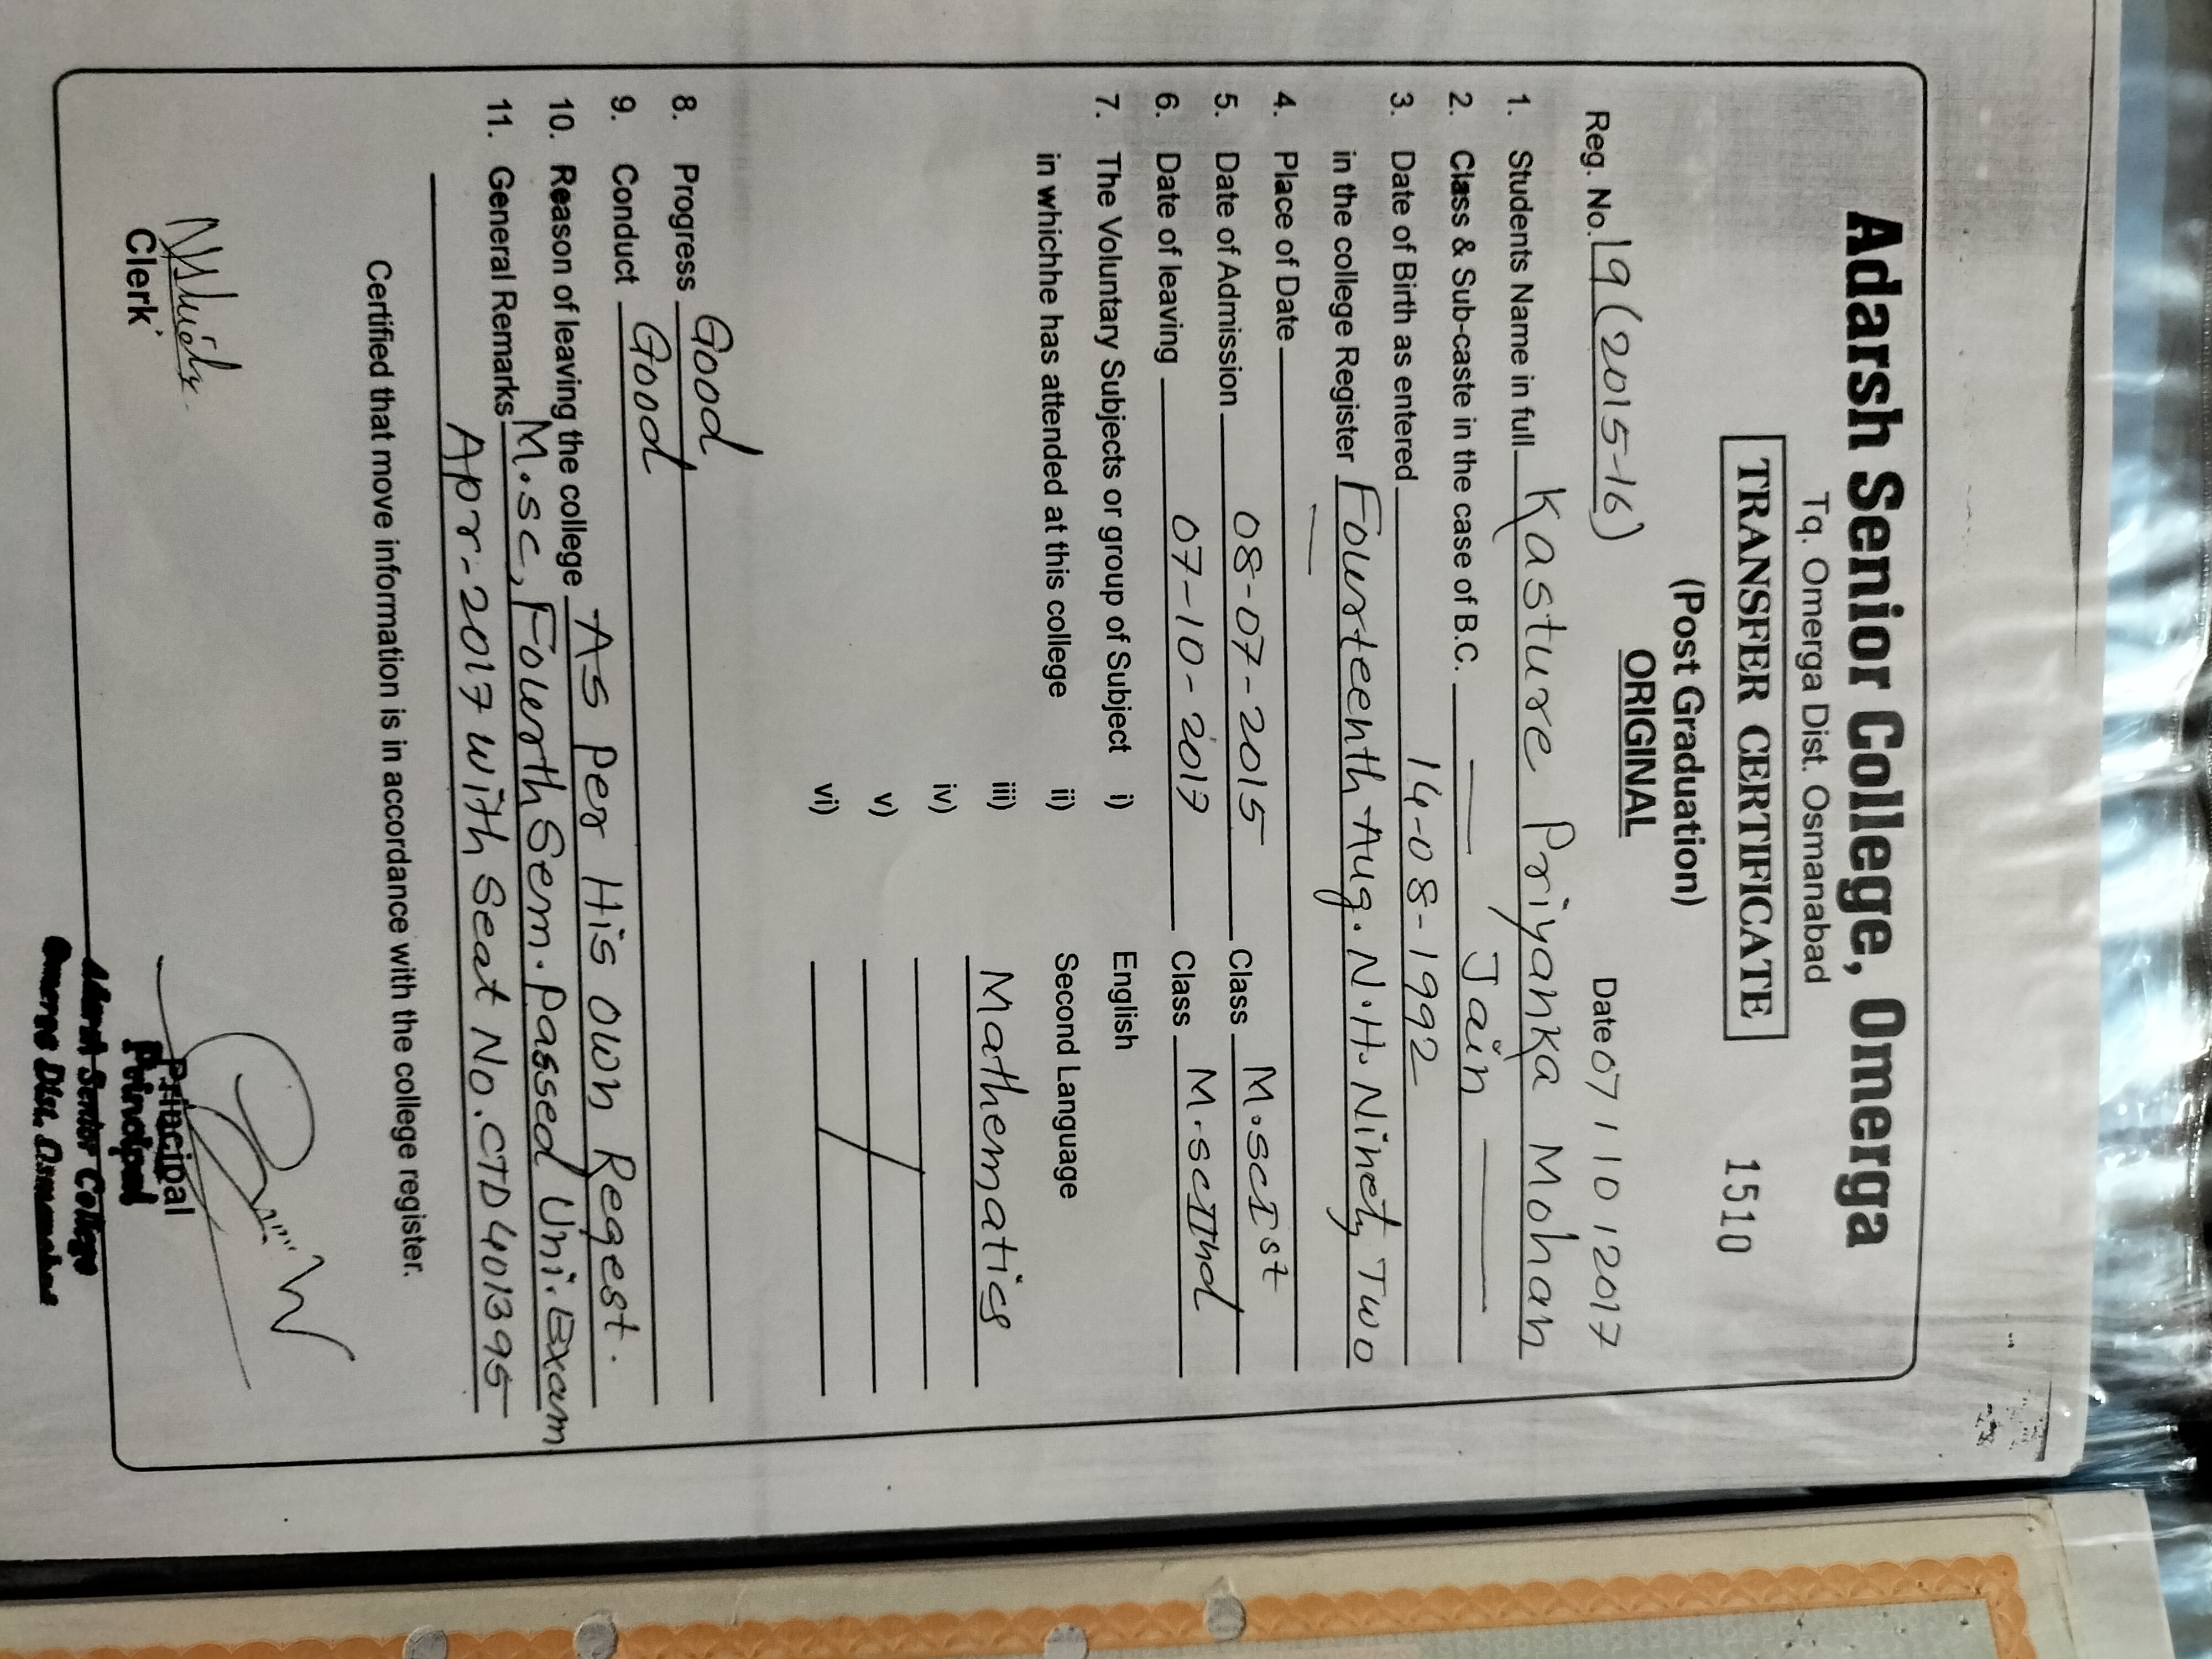 Adarsh Senior College, Omerga
Tq. Omerga Dist. Osmanabad
TRANSFER CERTIFICATE
1510
(Post Graduation)
ORIGINAL
Reg. No. 19(2015-16) Date 07 / 10 / 2017
1. Students Name in full Kasture Priyanka Mohan
2. Class & Sub-caste in the case of B.C. — Jain —
3. Date of Birth as entered 14-08-1992
in the college Register Fourteenth Aug. N.H. Ninety Two
4. Place of Date —
5. Date of Admission 08-07-2015 Class M.sc Ist
6. Date of leaving 07-10-2017 Class M.sc IInd
7. The Voluntary Subjects or group of Subject i) English
in whichhe has attended at this college ii) Second Language
iii) Mathematics
iv)
v)
vi)
8. Progress Good
9. Conduct Good
10. Reason of leaving the college As Per His Own Regest.
11. General Remarks M.sc, Fourth Sem. Passed Uni. Exam
Apr-2017 with Seat No. CTD401395
Certified that move information is in accordance with the college register.
Clerk
Principal
Principal
Adarsh Senior College
Omerga Dist. Osmanabad